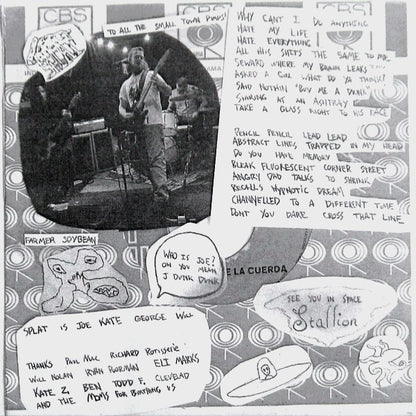 CBS
TO ALL THE SMALL TOWN PUNKS!
CBS
WHY CANT I DO ANYTHING
HATE MY LIFE
HATE EVERYTHING
ALL THIS SHITS THE SAME TO ME
SEWARD WHERE MY BRAIN LEAKS
ASKED A GIRL WHAT DO YA THINK?
SAID NOTHIN "BUY ME A DRINK"
SMOKING AT AN ASHTRAY
TAKE A GLASS RIGHT TO HIS FACE
PENCIL PENCIL LEAD LEAD
ABSTRACT LINES TRAPPED IN MY HEAD
DO YOU HAVE MEMORY
BLEAK FLUORESCENT CORNER STREET
ANGRY DAD TALKS TO SHRINK
RECALLS HYPNOTIC DREAM
CHANNELLED TO A DIFFERENT TIME
DONT YOU DARE CROSS THAT LINE
FARMER SOYBEAN
WHO IS JOE?
OH YOU MEAN
J DUNK DUNK
E LA CUERDA
SEE YOU IN SPACE
Stallion
SPLAT IS JOE KATE GEORGE WILL
THANKS PAUL MAC RICHARD ROTISSERIE
WILL NOLAN RYAN ELI MARKS
KATE Z, BEN TODD F. CLEVELAD
AND THE MOMS FOR BIRTHING US